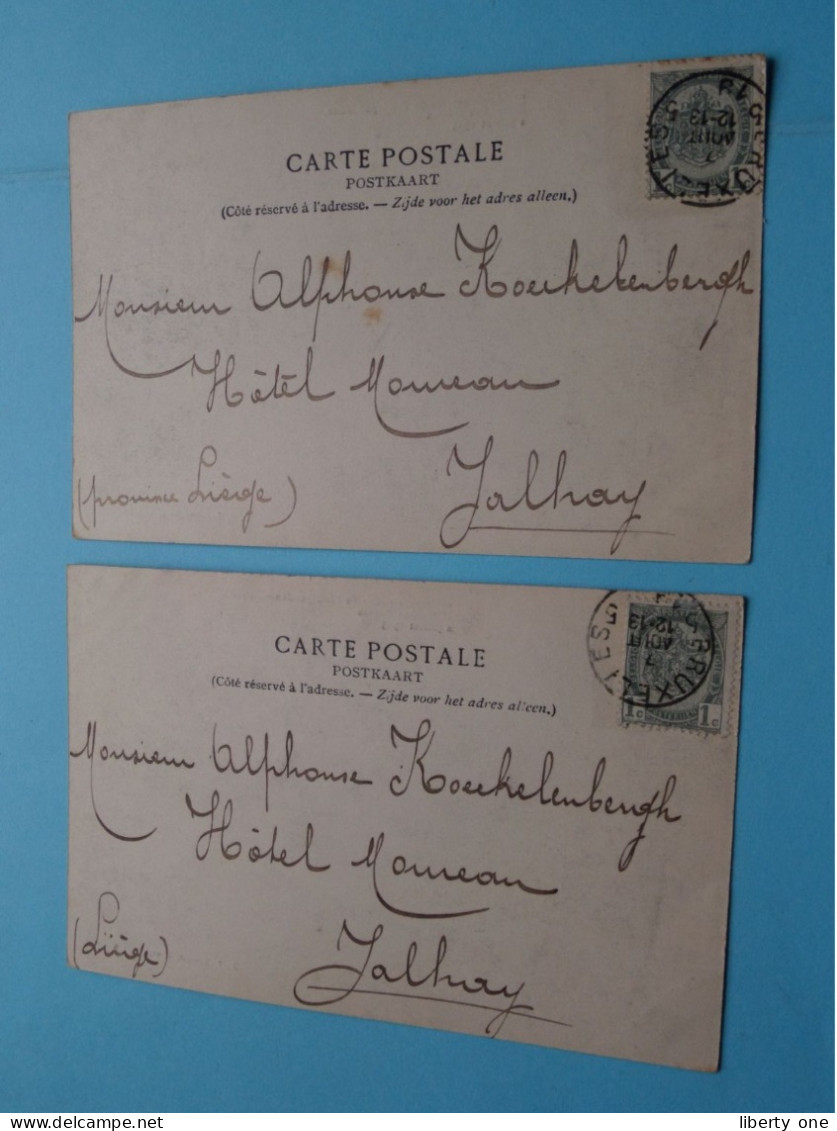 CARTE POSTALE
POSTKAART
(Côté réservé à l'adresse. — Zijde voor het adres alleen.)
BRUXELLES 5
7
AOUT
12-13
Monsieur Alphonse Koeckelenbergh
Hôtel Moureau
Jalhay
(province Liège)
CARTE POSTALE
POSTKAART
(Côté réservé à l'adresse. — Zijde voor het adres alleen.)
BRUXELLES 5
7
AOUT
12-13
1c 1c
Monsieur Alphonse Koeckelenbergh
Hôtel Moureau
Jalhay
(Liège)
liberty one